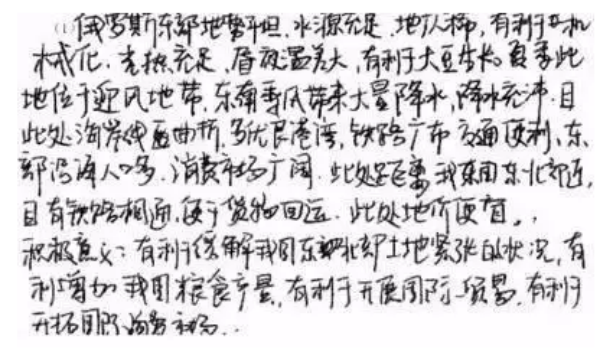 (1) 俄罗斯东部地势平坦,水源充足,地广人稀,有利于机
械化,光热充足,昼夜温差大,有利于大豆生长。夏季此
地位于迎风地带,东南季风带来大量降水,降水充沛。且
此处海岸线曲折,多优良港湾,铁路广布 交通便利,东
部沿海人口多,消费市场广阔,此处距离我国东北部近,
且有铁路相通,便于货物回运。此处地价便宜。
积极意义:有利于缓解我国东北部土地紧张的状况,有
利增加我国粮食产量,有利于开展国际贸易,有利于
开拓国际消费市场。